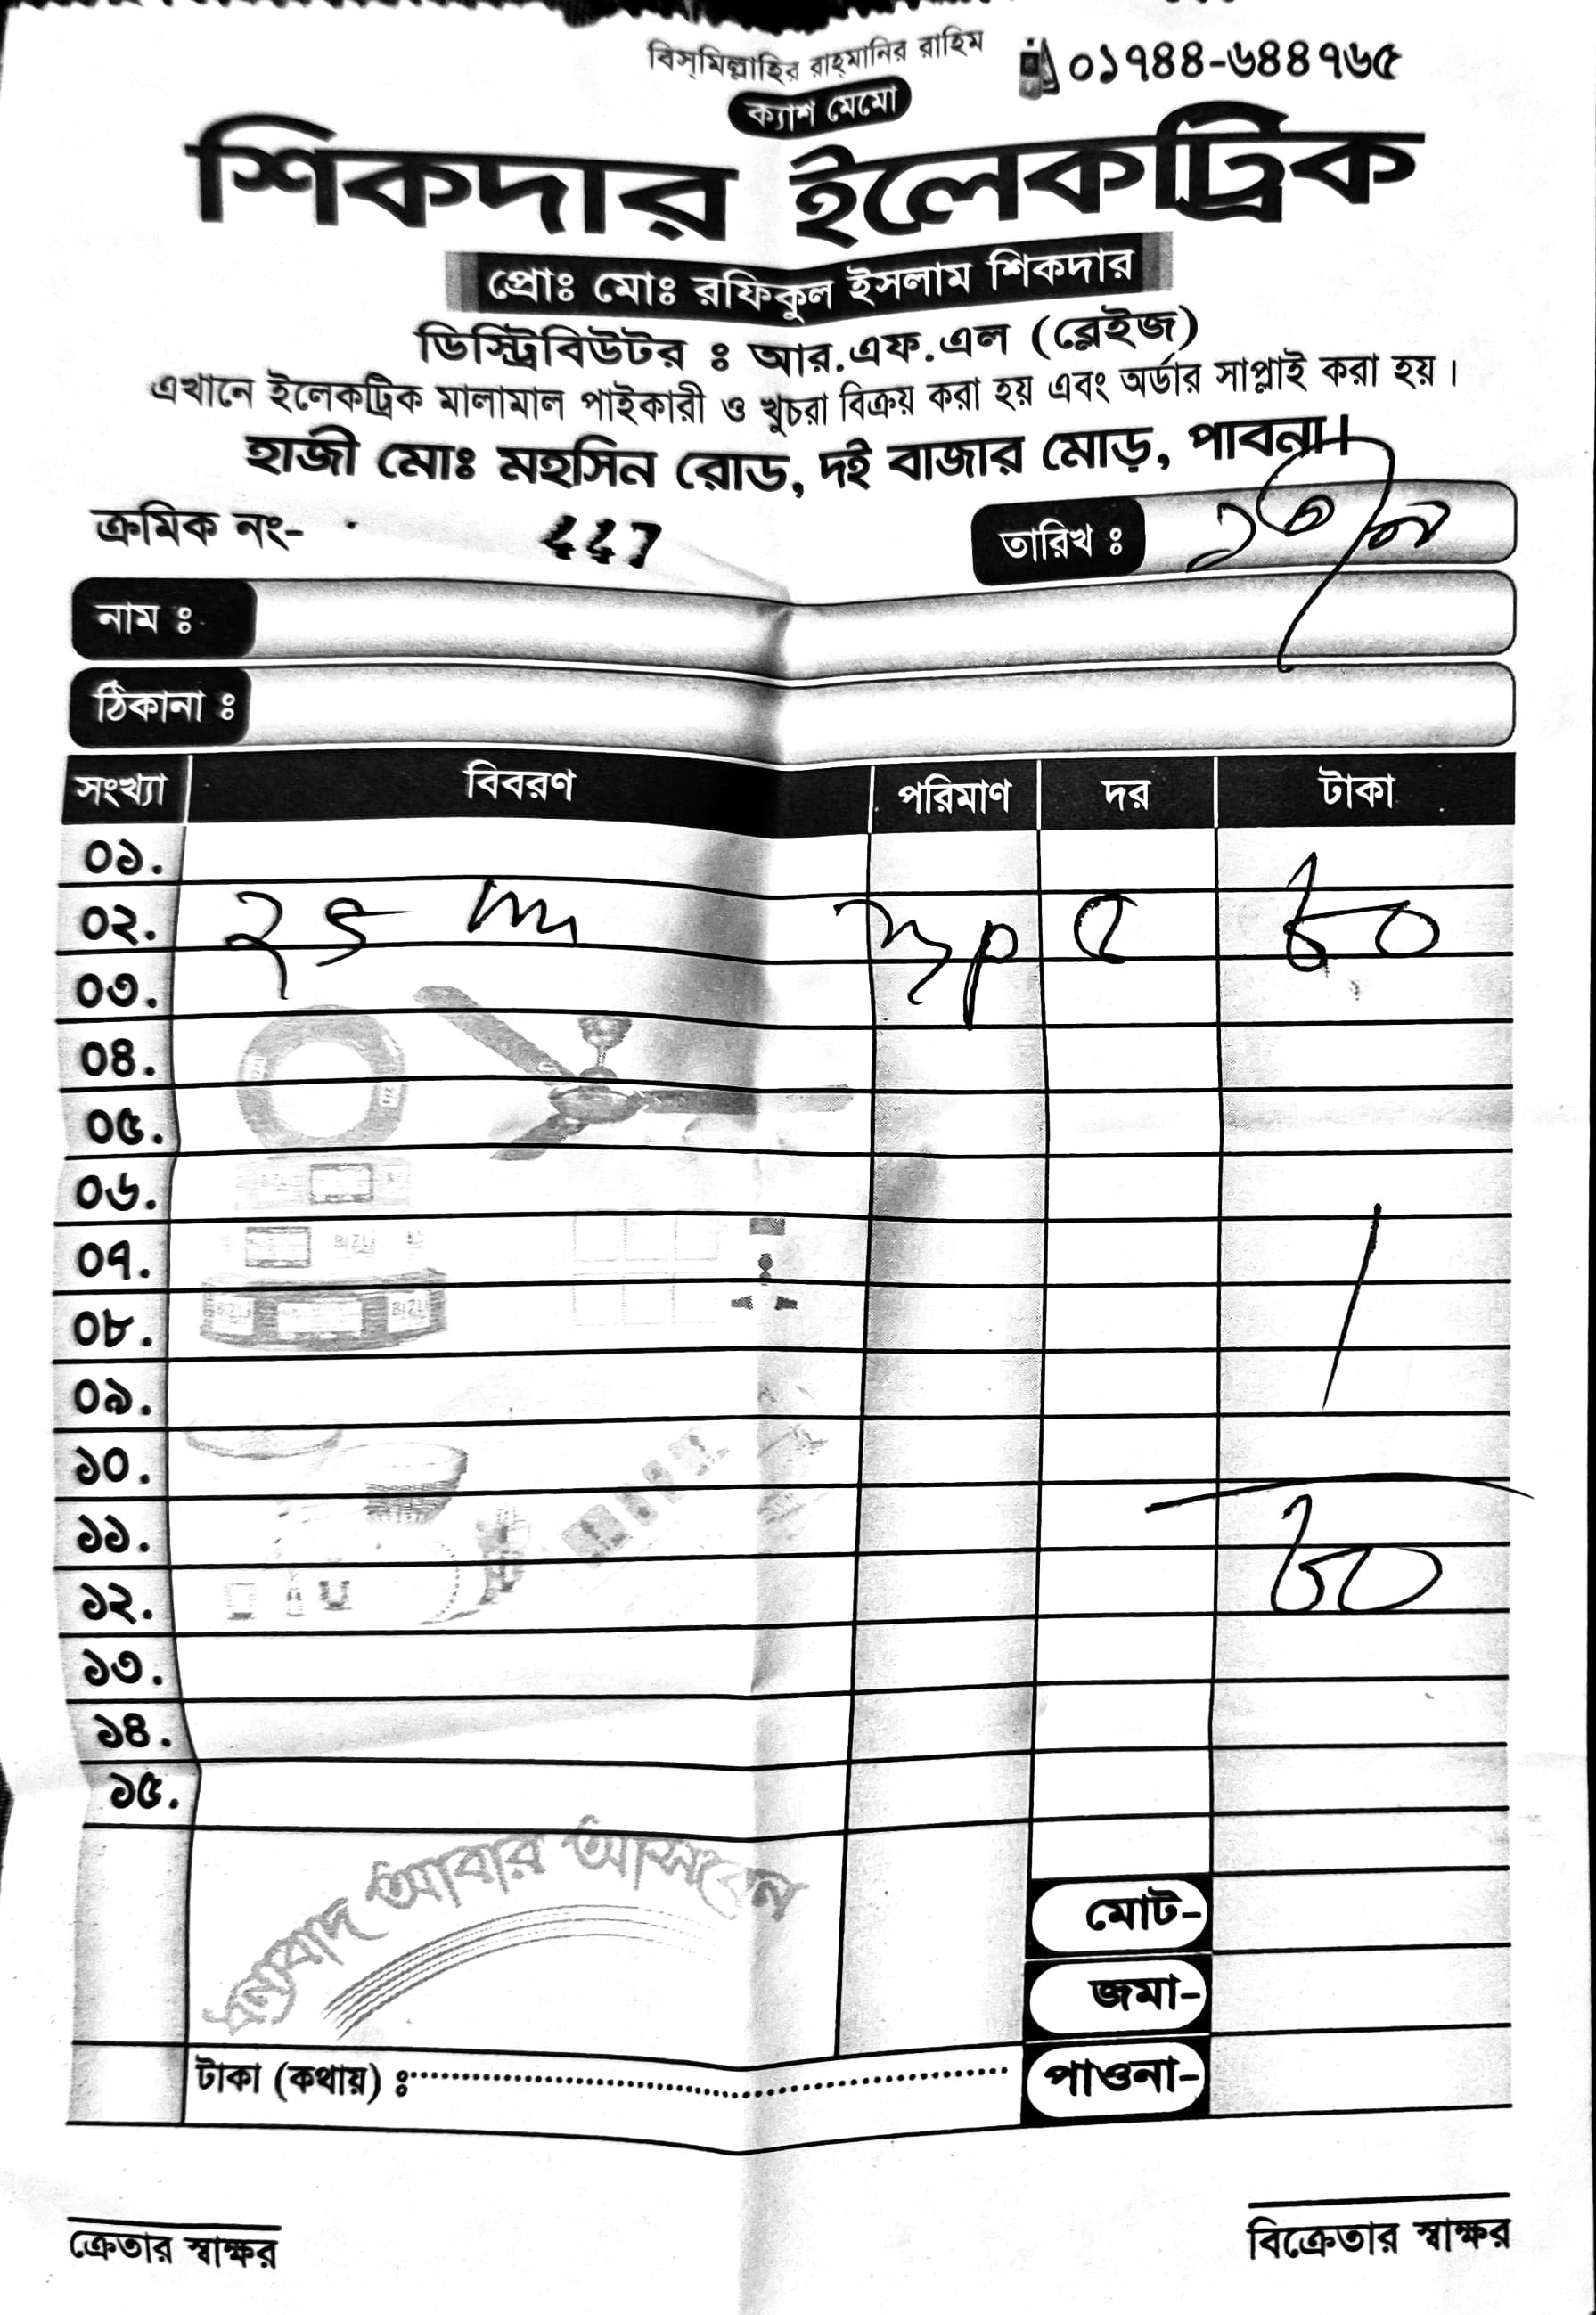 বিস্‌মিল্লাহির রাহ্‌মানির রাহিম
০১৭৪৪-৬৪৪৭৬৫
ক্যাশ মেমো
শিকদার ইলেকট্রিক
প্রোঃ মোঃ রফিকুল ইসলাম শিকদার
ডিস্ট্রিবিউটর ঃ আর.এফ.এল (ব্লেইজ)
এখানে ইলেকট্রিক মালামাল পাইকারী ও খুচরা বিক্রয় করা হয় এবং অর্ডার সাপ্লাই করা হয়।
হাজী মোঃ মহসিন রোড, দই বাজার মোড়, পাবনা।
ক্রমিক নং- 447 তারিখ ঃ
নাম ঃ
ঠিকানা ঃ
সংখ্যা বিবরণ পরিমাণ দর টাকা
০১.
০২. ৮০
০৩.
০৪.
০৫.
০৬.
০৭. BIZLI
০৮. BIZLI BIZLI
০৯.
১০.
১১.
১২. ৮০
১৩.
১৪.
১৫.
ধন্যবাদ আবার আসবেন
মোট-
জমা-
টাকা (কথায়) ঃ পাওনা-
ক্রেতার স্বাক্ষর বিক্রেতার স্বাক্ষর